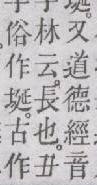 埏。又道德經音
字林云。長也。丑
俗作埏。古作